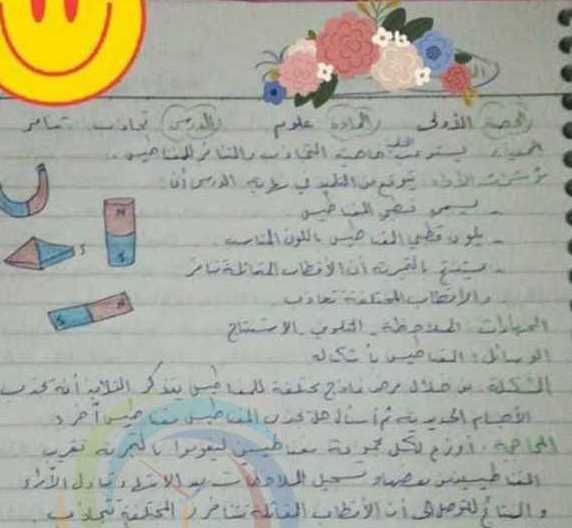 الحصة الأولى المادة علوم الدرس تجاذب تنافر
المعيار: يستوعب خاصية التجاذب والتنافر للمغناطيس.
مؤشرات الأداء: يتوقع من التلميذ في نهاية الدرس أن:
- يسمي قطبي المغناطيس
- يلون قطبي المغناطيس باللون المناسب.
- يستنتج بالتجربة أن الأقطاب المتماثلة تتنافر
والأقطاب المختلفة تتجاذب
المهارات: الملاحظة - التلوين - الاستنتاج
الوسائل: المغناطيس بأشكاله
المشكلة: من خلال عرض نماذج مختلفة للمغناطيس يتذكر التلاميذ أنه يجذب
الأجسام الحديدية ثم أسأل هل يجذب المغناطيس مغناطيس آخر؟
المحاجة: أوزع لكل مجموعة مغناطيسين ليقوموا بالتجربة تقريب
المغناطيسين بعضهما وتسجيل الملاحظات تبادل الآراء
و للتوصل إلى أن الأقطاب المتماثلة تتنافر والمختلفة تتجاذب.
N
S
S
S
N